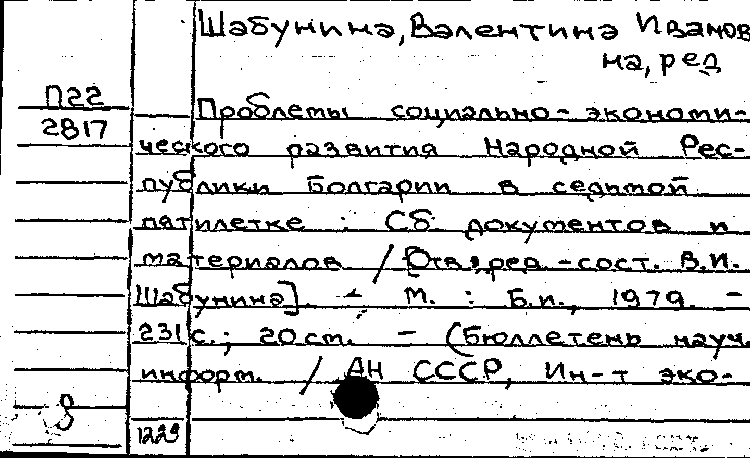 Шабунина, Валентина Иванов
на, ред
П22
2817
Проблемы социально-экономи-
ческого развития Народной Рес-
публики Болгарии в седьмой
пятилетке : Сб. документов и
материалов / [Отв. ред.-сост. В.И.
Шабунина]. - М. : Б.и., 1979. -
231 с.; 20 см. - (Бюллетень науч.
информ. / АН СССР, Ин-т эко-
1229